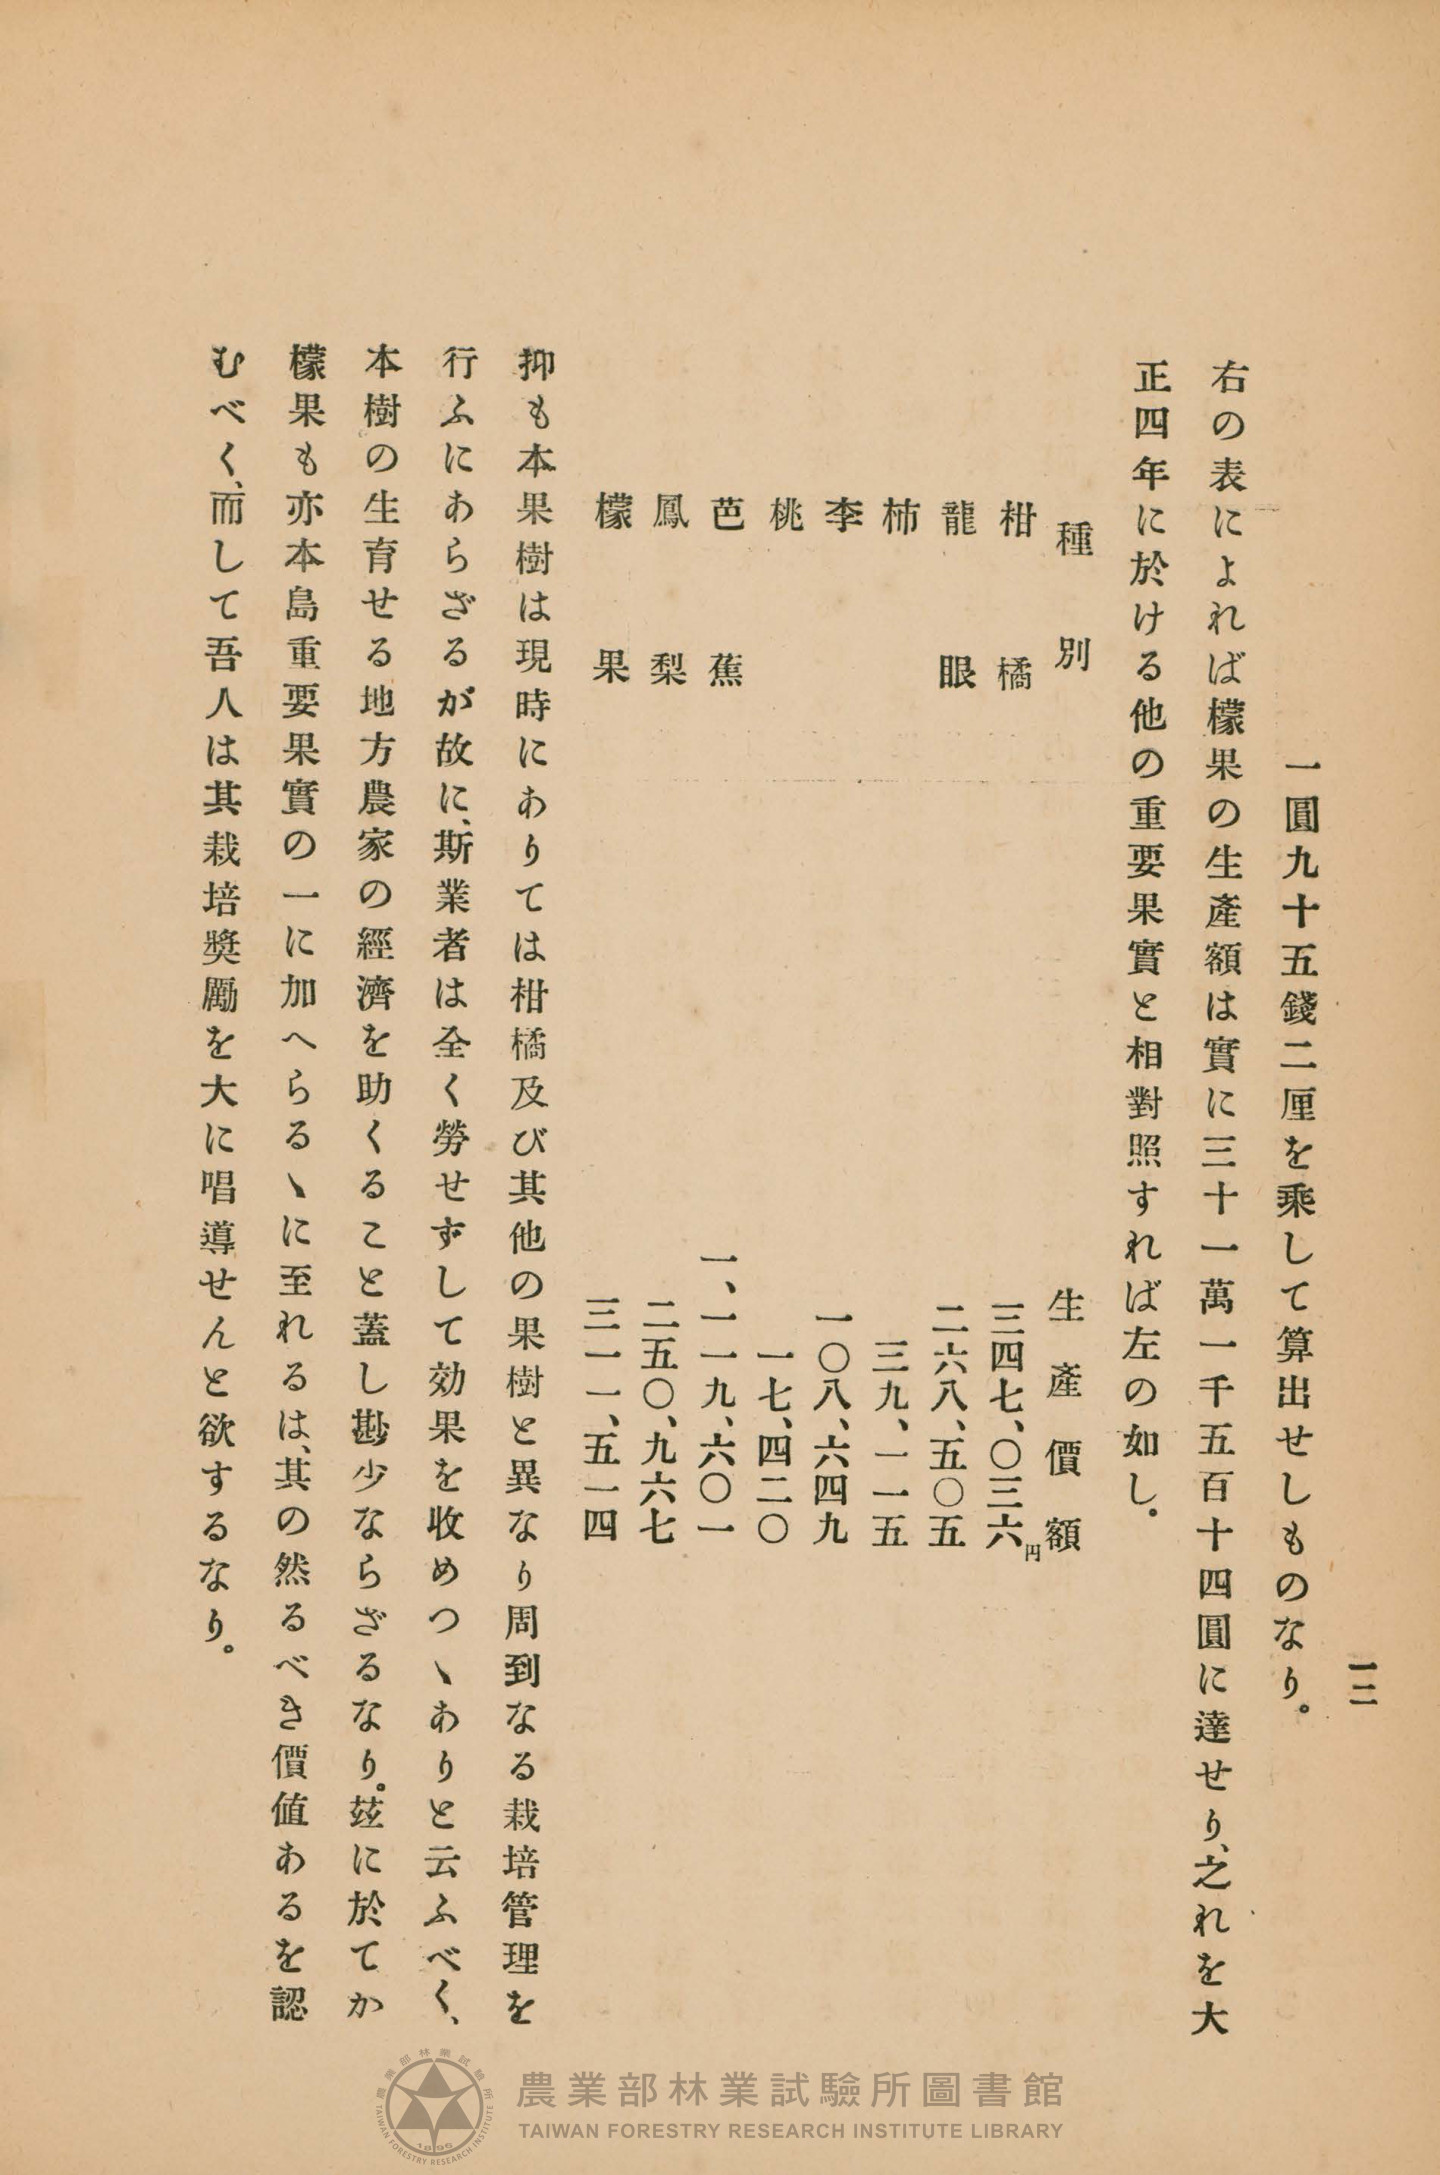 一二
一圓九十五錢二厘を乘して算出せしものなり。
右の表によれば檬果の生產額は實に三十一萬一千五百十四圓に達せり、之れを大
正四年に於ける他の重要果實と相對照すれば左の如し。
種別 生產價額
柑橘 三四七、〇三六円
龍眼 二六八、五〇五
柿 三九、一一五
李 一〇八、六四九
桃 一七、四二〇
芭蕉 一、一一九、六〇一
鳳梨 二五〇、九六七
檬果 三一一、五一四
抑も本果樹は現時にありては柑橘及び其他の果樹と異なり周到なる栽培管理を
行ふにあらざるが故に、斯業者は全く勞せずして効果を收めつヽありと云ふべく、
本樹の生育せる地方農家の經濟を助くること蓋し尠少ならざるなり。茲に於てか
檬果も亦本島重要果實の一に加へらるヽに至れるは、其の然るべき價値あるを認
むべく、而して吾人は其栽培奬勵を大に唱導せんと欲するなり。
農業部林業試驗所
TAIWAN FORESTRY RESEARCH INSTITUTE
1896
農業部林業試驗所圖書館
TAIWAN FORESTRY RESEARCH INSTITUTE LIBRARY